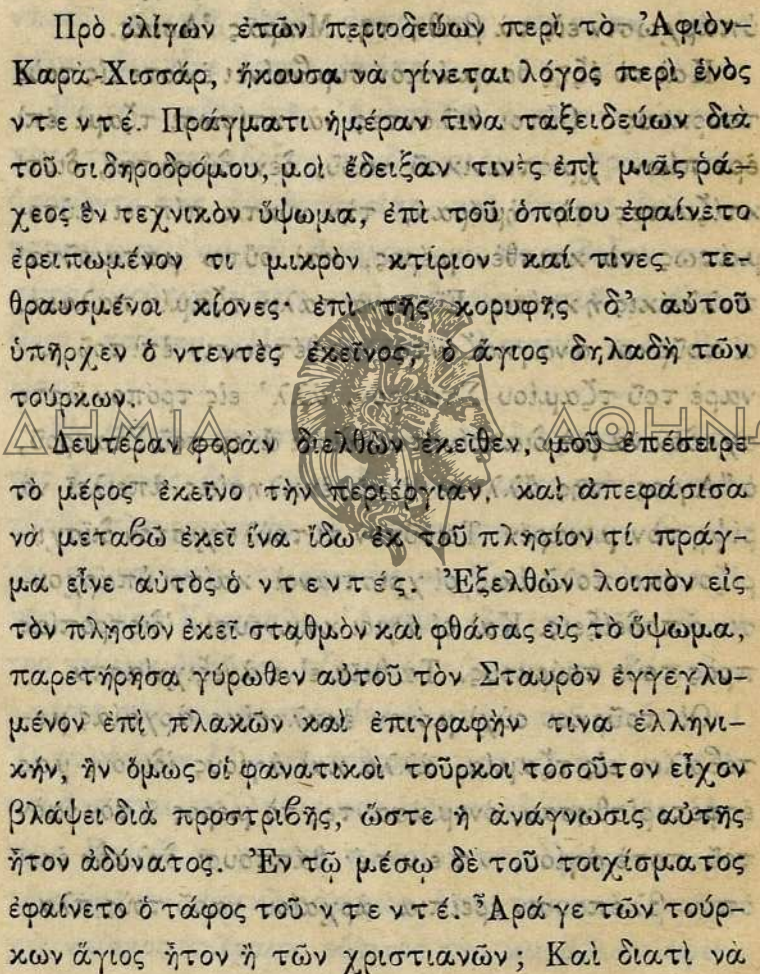 Πρὸ ὀλίγων ἐτῶν περιοδεύων περὶ τὸ Ἀφιὸν-
Καρὰ-Χισσάρ, ἤκουσα νὰ γίνεται λόγος περὶ ἑνὸς
ντεντέ. Πράγματι ἡμέραν τινα ταξειδεύων διὰ
τοῦ σιδηροδρόμου, μοὶ ἔδειξαν τινὲς ἐπὶ μιᾶς ῥά-
χεος ἓν τεχνικὸν ὕψωμα, ἐπὶ τοῦ ὁποίου ἐφαίνετο
ἐρειπωμένον τι μικρὸν κτίριον καί τινες τε-
θραυσμένοι κίονες· ἐπὶ τῆς κορυφῆς δ' αὐτοῦ
ὑπῆρχεν ὁ ντεντὲς ἐκεῖνος, ὁ ἅγιος δηλαδὴ τῶν
τούρκων.
Δευτέραν φορὰν διελθὼν ἐκεῖθεν, μοῦ ἐπέσειρε
τὸ μέρος ἐκεῖνο τὴν περιέργιαν, καὶ ἀπεφάσισα
νὰ μεταβῶ ἐκεῖ ἵνα ἴδω ἐκ τοῦ πλησίον τί πράγ-
μα εἶνε αὐτὸς ὁ ντεντές. Ἐξελθὼν λοιπὸν εἰς
τὸν πλησίον ἐκεῖ σταθμὸν καὶ φθάσας εἰς τὸ ὕψωμα,
παρετήρησα γύρωθεν αὐτοῦ τὸν Σταυρὸν ἐγγεγλυ-
μένον ἐπὶ πλακῶν καὶ ἐπιγραφὴν τινα ἑλληνι-
κήν, ἣν ὅμως οἱ φανατικοὶ τοῦρκοι τοσοῦτον εἶχον
βλάψει διὰ προστριβῆς, ὥστε ἡ ἀνάγνωσις αὐτῆς
ἦτον ἀδύνατος. Ἐν τῷ μέσῳ δὲ τοῦ τοιχίσματος
ἐφαίνετο ὁ τάφος τοῦ ντεντέ. Ἆρά γε τῶν τούρ-
κων ἅγιος ἦτον ἢ τῶν χριστιανῶν; Καὶ διατὶ νὰ